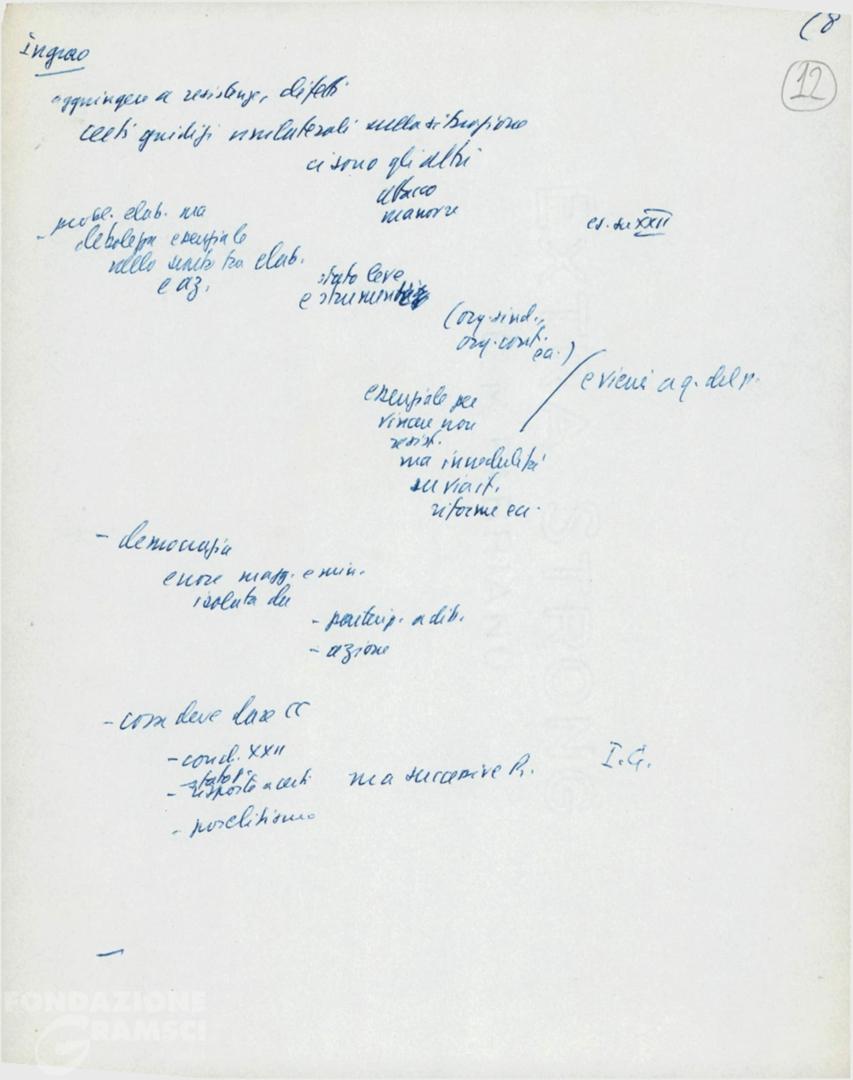 (8
12
Ingrao
aggiungere a resistenze, difetti
certi giudizi unilaterali sulla situazione
ci sono gli altri
attacco
manovre
es. su XXII
- probl. elab. ma
debolezza essenziale
nello scarto tra elab.
e az.
stato leve
e strumenti
(org. sind.,
org. cont.
ec.)
e vieni a q. del p.
essenziale per
vincere non
resist.
ma incredulità
su via it.
riforme ec.
- democrazia
errore magg. e min.
isolata da
- partecip. a dib.
- azione
- cosa deve dare CC
- concl. XXII
stato p.
- risposte a certi
ma successive
I.G.
- proselitismo
FONDAZIONE
GRAMSCI